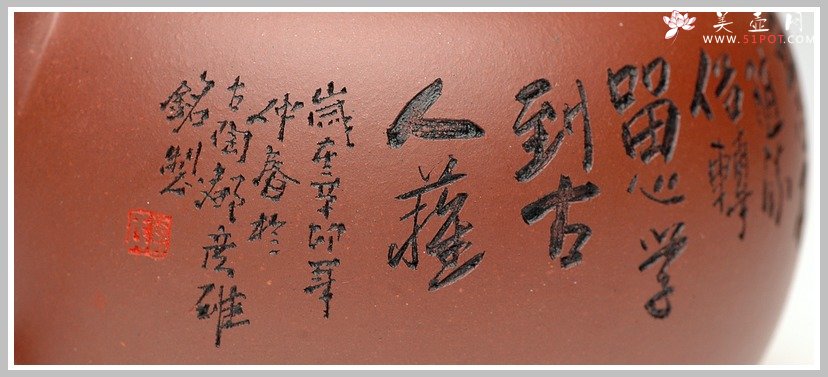 俗轉
留心學
到古
人難
歲在辛卯年
仲春於
古陶都彦碓
銘製
美壶网
WWW.51POT.COM